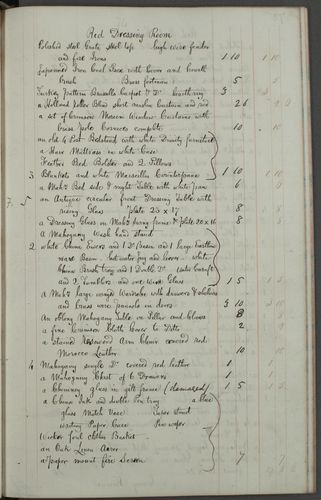 Red Dressing Room
Polished steel Grate, steel top high wire fender
and fire Irons 1 10 1 10
Japanned Iron Coal Box with Cover and Hearth
Brush Brass footman 5 5
Turkey pattern Brussels Carpet & D° hearthrug 3 3
a Holland roller Blind short muslin Curtain and rod 2 6
a set of Crimson Moreen Window Curtains with
brass pole Cornice complete 10 10
an old 4 Post Bedstead with white Dimity furniture
a Hair Mattress in white Case
Feather Bed Bolster and 2 Pillows
3 Blankets and white Marseilles Counterpane 1 10 1 10
a Mah Bed side night Table with white pan 6
an Antique circular front Dressing Table with
7 5
rising Glass plate 23 x 17 8
a Dressing Glass in Mah swing frame & plate 20 x 16 8
A Mahogany Wash hand stand
2 white China Ewers and 1 D° Basin and 1 large Earthen
ware Basin hot water jug and cover white
China Brush tray and 1 Doulble D° water Caraft
and 2 Tumblers and one Wine Glass 1 5 1 5
a Mah large winged Wardrobe with drawers & shelves
and brass wire panels in doors 3 10
An oblong Mahogany Table on Pillar and Claws 8
a fine Crimson Cloth Cover to Ditto 2
a stained Rosewood Arm Chair covered red
Morocco Leather 10
4 Mahogany single D° covered red leather 1
a Mahogany Chest of 6 Drawers 1
a Chimney glass in gilt frame (damaged) 1 5
a China Ink and double Pen tray a
glass Match Vase Paper stand
writing Paper Case Pen wiper
Wicker foul clothes Basket
an Oak Linen Airer
a paper mount fire Screen 7 7